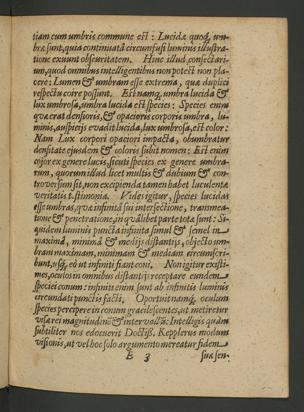 tiam cum umbris commune est: Lucidæ quoq, um-
bræ sunt, quia continuatâ circumfusi luminis illustra-
tione exuunt obscuritatem. Hinc illud consectari-
um, quod omnibus intelligentibus non potest non pla-
cere: Lumen & umbram esse extrema, quæ duplici
respectu coire possunt. Est namq, umbra lucida &
lux umbrosa, umbra lucida est species: Species enim
quæ erat densioris, & opacioris corporis umbra, lu-
minis auspicijs evadit lucida, lux umbrosa, est color:
Nam Lux corpori opaciori impacta, obumbratur
densitate ejusdem & coloris subit nomen: Est enim
color ex genere lucis, sicuti species ex genere umbra-
rum, quorum illud licet multis & dubium & con-
troversum sit, non excipienda tamen habet luculentæ
veritatis testimonia. Vides igitur, species lucidas
esse umbras, quæ infinitâ sui intersectione, transmea-
tione & penetratione, in quâlibet parte totæ sunt: Si-
quidem luminis puncta infinita simul & semel in
maximâ, minimâ & medijs distantijs, objecto um-
bram maximam, minimam & mediam circumscri-
bunt, usq, eo ut infiniti fiant coni. Non igitur existi-
mes, oculos in omnibus distantijs receptare eundem
speciei conum: infiniti enim sunt ab infinitis luminis
circundati punctis facti. Oportuit namq, oculum
species percipere in conum gracilescentes, ut metiretur
visæ rei magnitudinē & intervallū: Intelligis quàm
subtiliter nos edocuerit Doctiss. Kepplerus modum
visionis, ut vel hoc solo argumento mereatur fidem
E 3 suæ sen-